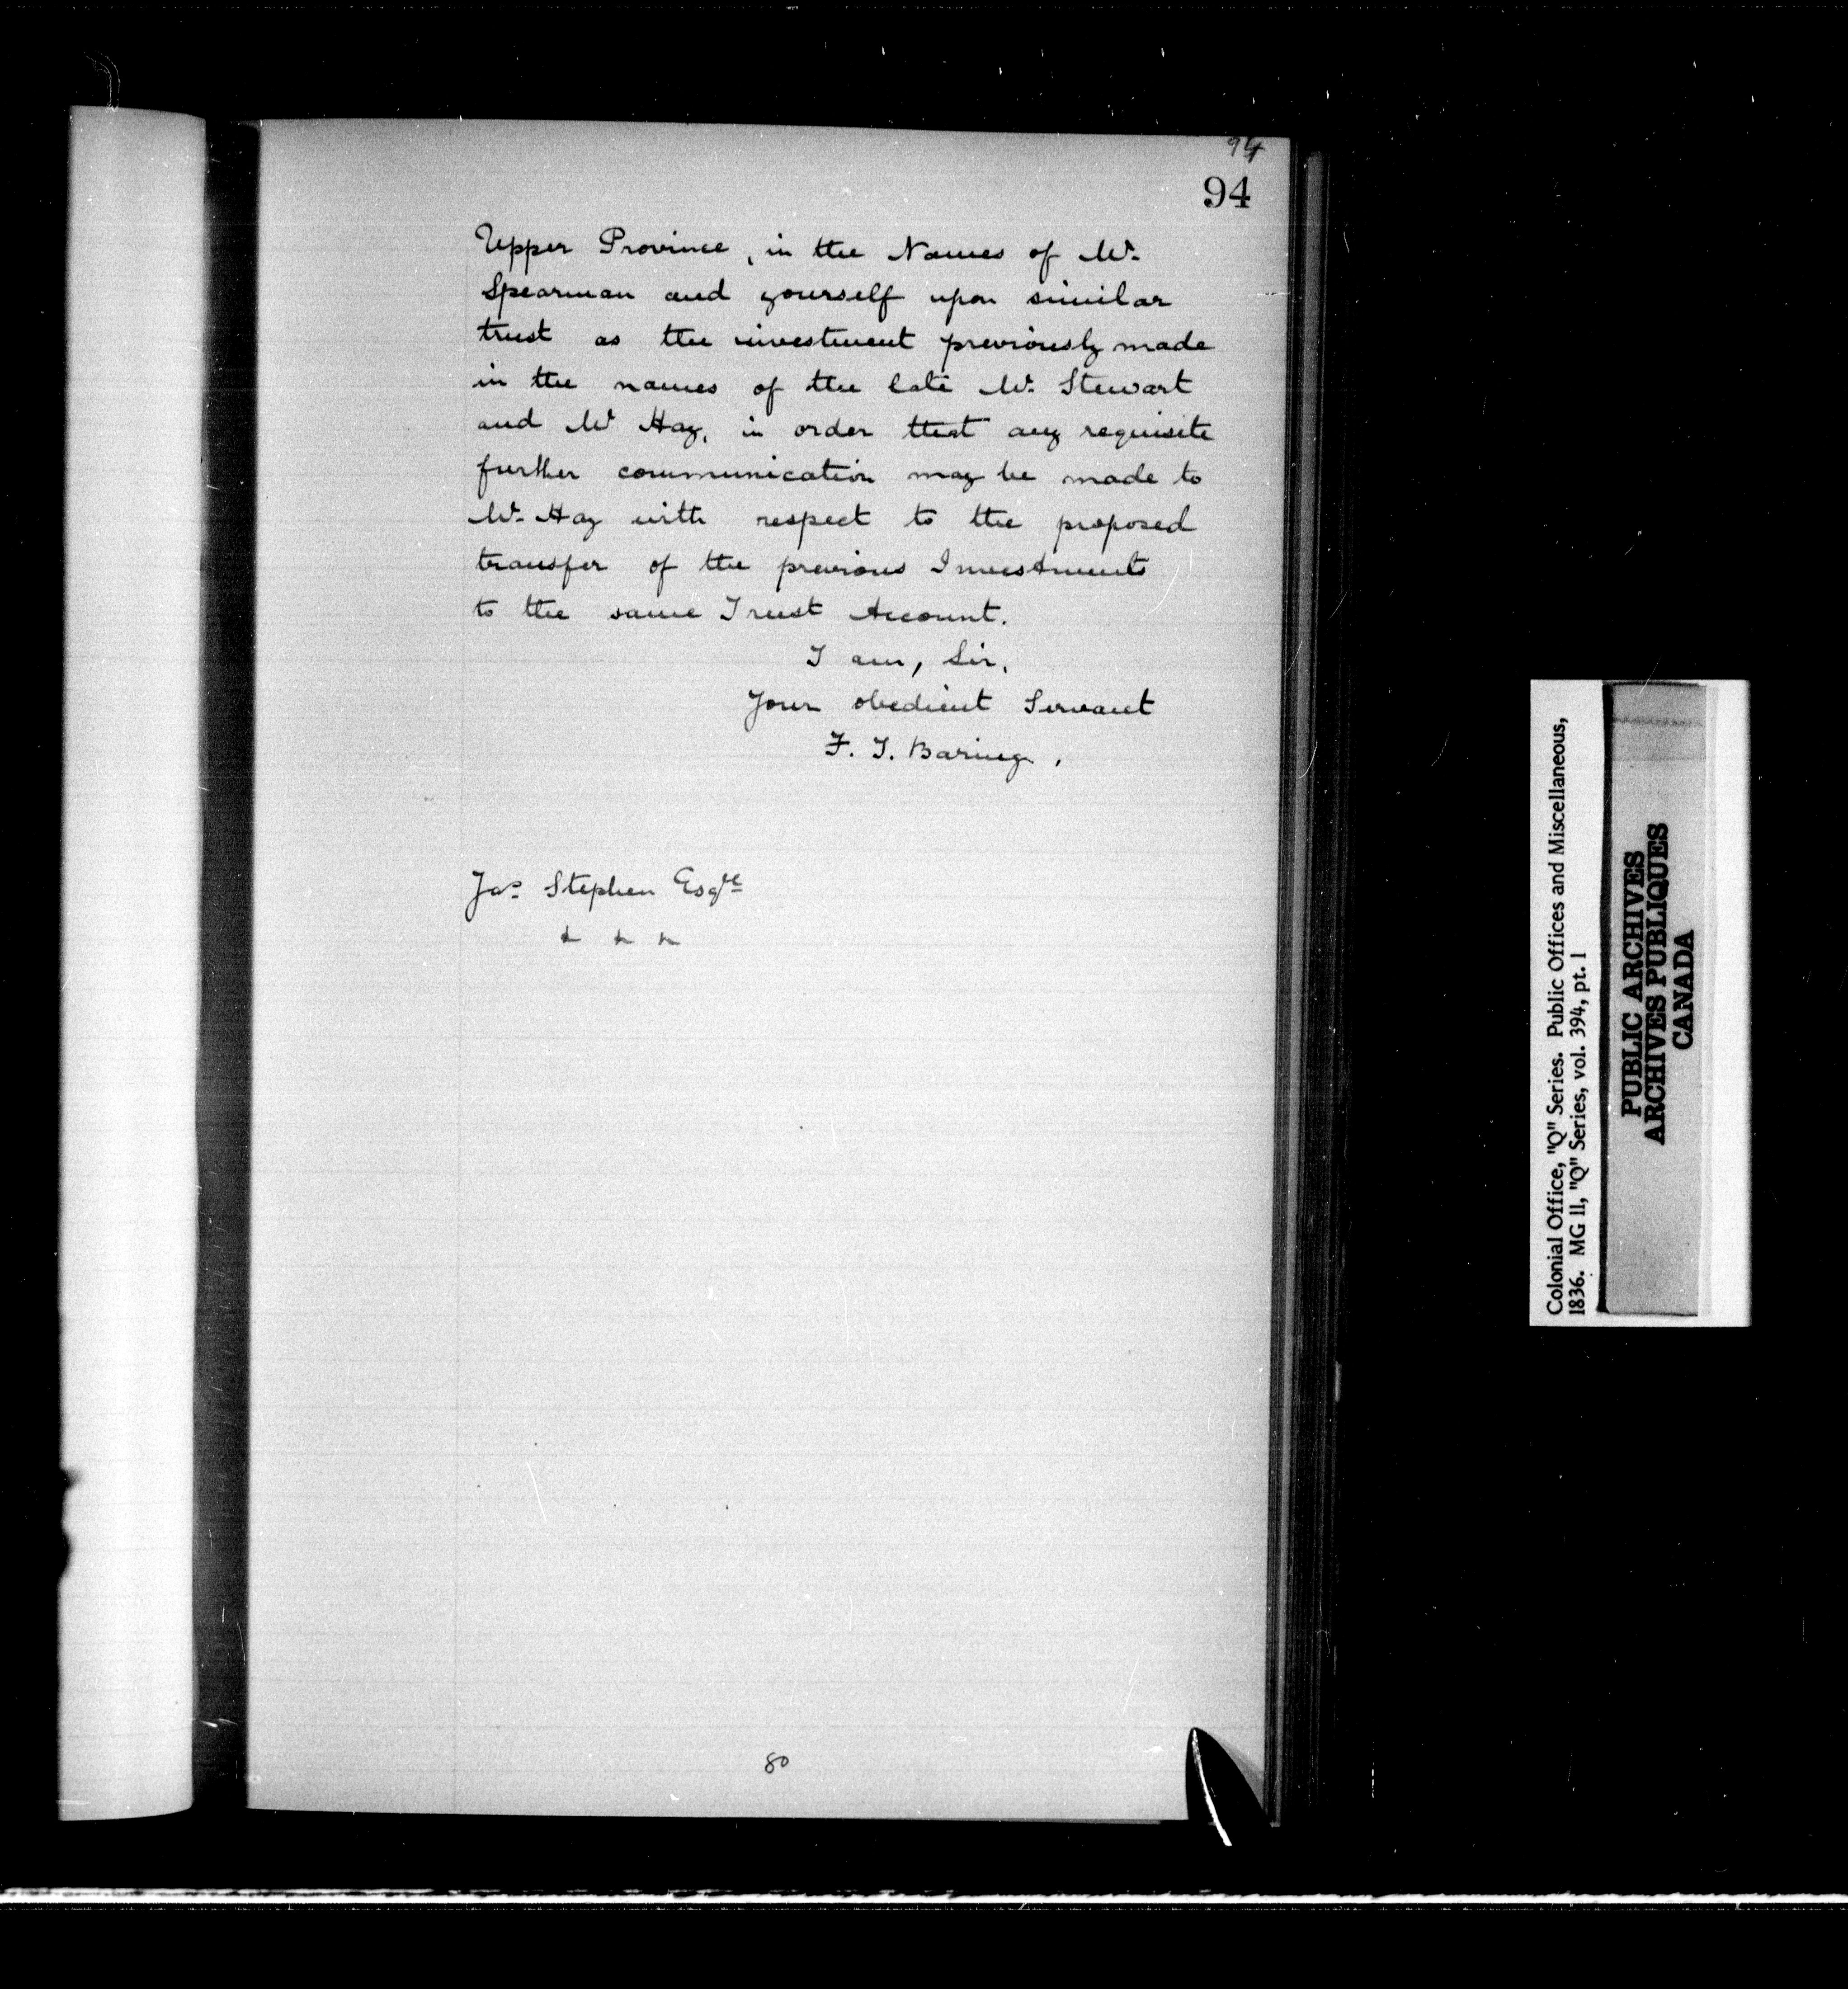 94
94
Upper Province, in the Names of Mr.
Spearman and yourself upon similar
trust as the investment previously made
in the names of the late Mr. Stewart
and Mr Hay, in order that any requisite
further communication may be made to
Mr. Hay with respect to the proposed
transfer of the previous Investments
to the same Trust Account.
I am, Sir,
Your obedient Servant
F. T. Baring.
Jas. Stephen Esqre
80
Colonial Office, "Q" Series. Public Offices and Miscellaneous,
1836. MG 11, "Q" Series, vol. 394, pt. 1
PUBLIC ARCHIVES
ARCHIVES PUBLIQUES
CANADA